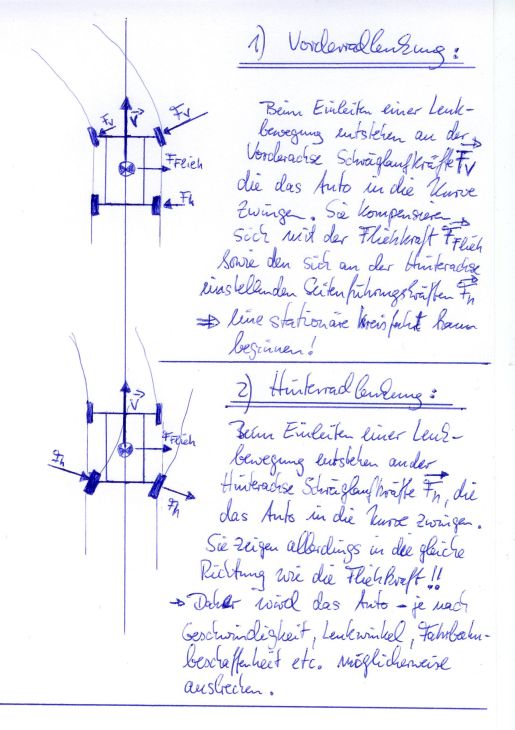 1) Vorderradlenkung:
Beim Einleiten einer Lenk-
bewegung entstehen an der
Vorderachse Schräglaufkräfte F_V
die das Auto in die Kurve
zwingen. Sie kompensieren
sich mit der Fliehkraft F_Flieh
sowie den sich an der Hinterachse
einstellenden Seitenführungskräften F_h
⇒ eine stationäre Kreisfahrt kann
beginnen!
F_V
V
F_V
F_Flieh
F_h
2) Hinterradlenkung:
Beim Einleiten einer Lenk-
bewegung entstehen an der
Hinterachse Schräglaufkräfte F_h, die
das Auto in die Kurve zwingen.
Sie zeigen allerdings in die gleiche
Richtung wie die Fliehkraft!!
→ Daher wird das Auto - je nach
Geschwindigkeit, Lenkwinkel, Fahrbahn-
beschaffenheit etc. möglicherweise
ausbrechen.
V
F_Flieh
F_h
F_h